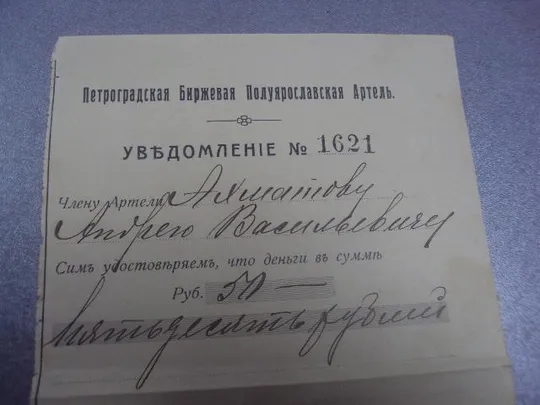 Петроградская Биржевая Полуярославская Артель.
УВѢДОМЛЕНІЕ № 1621
Члену Артели Ахматову
Андрею Васильевичу
Симъ удостовѣряемъ, что деньги въ суммѣ
Руб. 50 —
Пятьдесятъ рублей